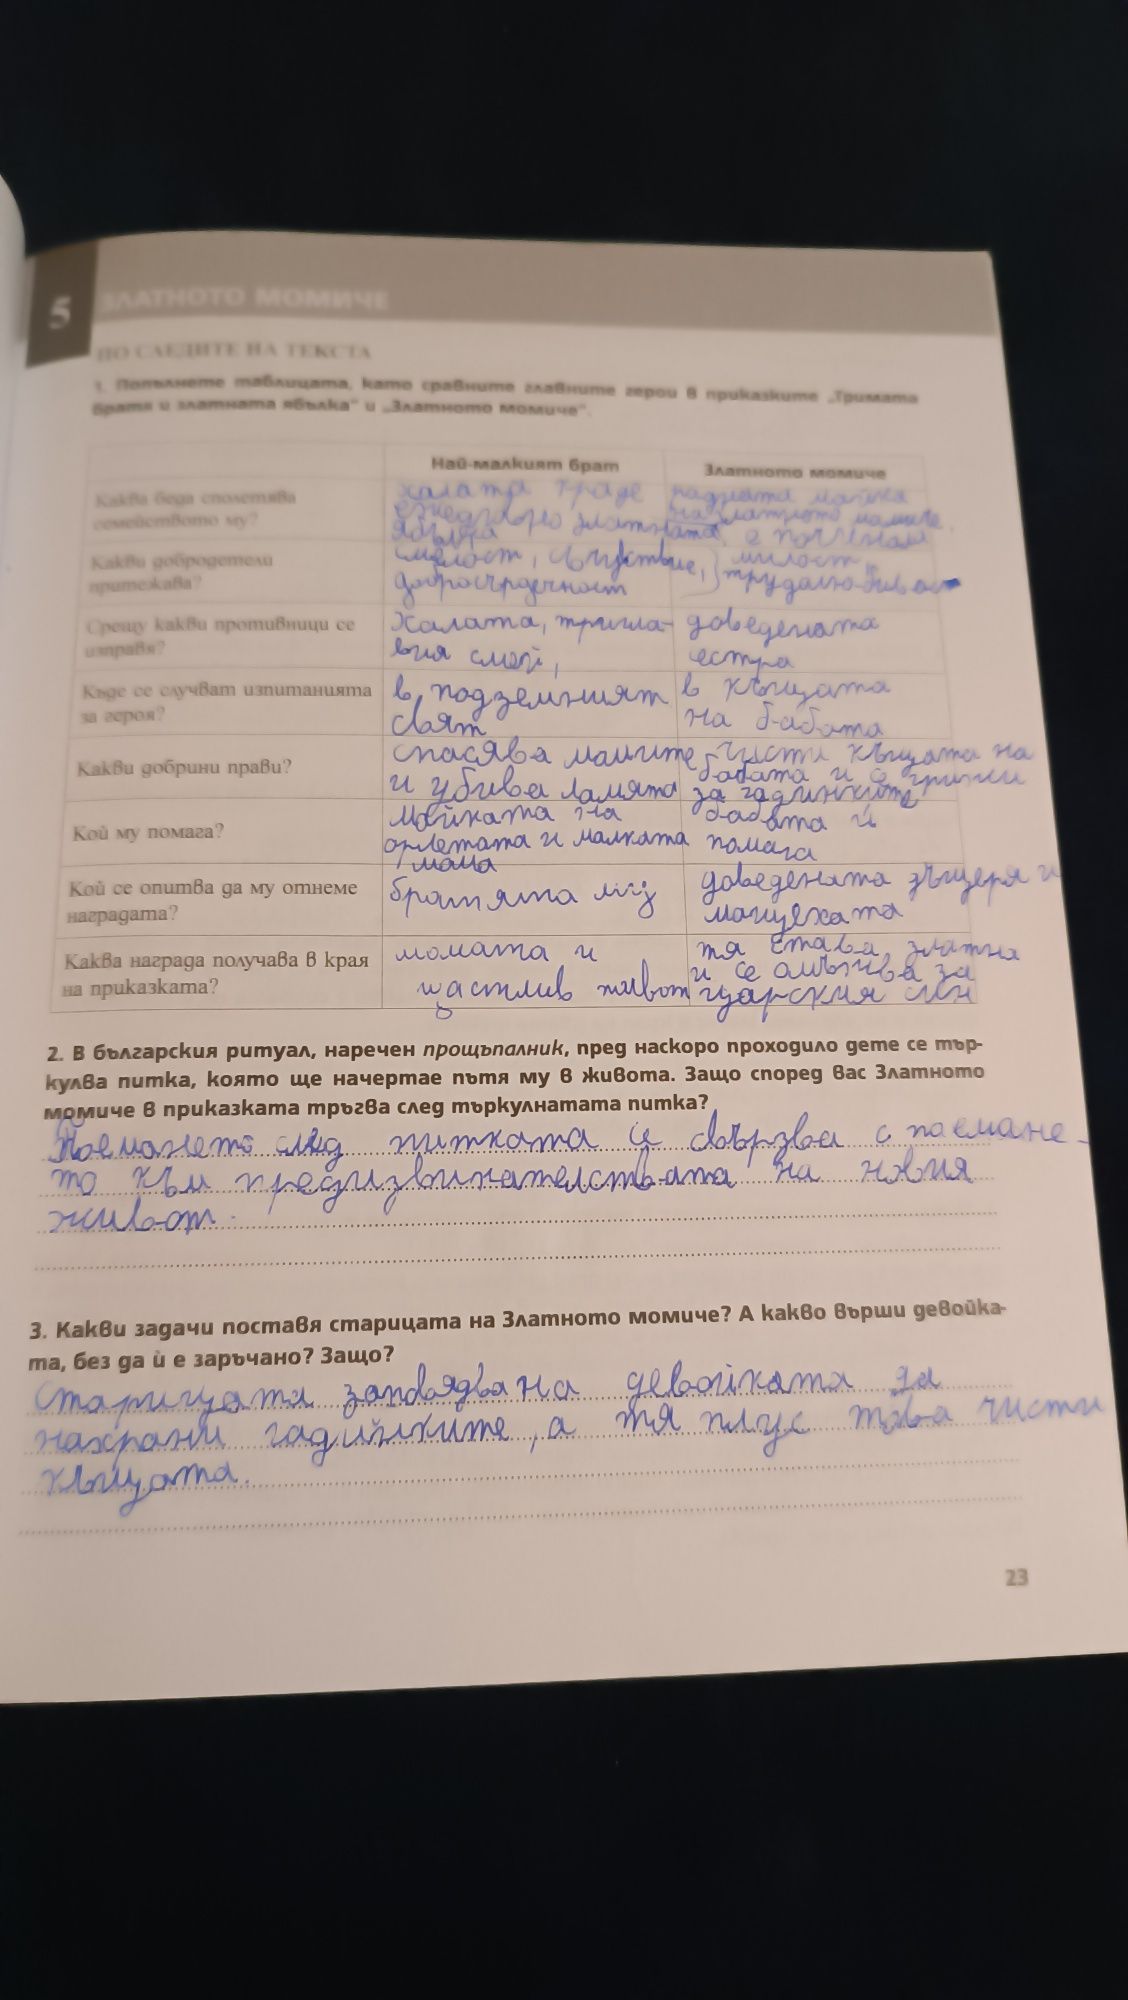 5 ЗЛАТНОТО МОМИЧЕ
ПО СЛЕДИТЕ НА ТЕКСТА
1. Попълнете таблицата, като сравните главните герои в приказките „Тримата
братя и златната ябълка“ и „Златното момиче“.
Най-малкият брат
Златното момиче
Каква беда сполетява
семейството му?
халата краде
ежегодно златната
ябълка
майка
на златното момиче
е починала
Какви добродетели
притежава?
смелост, съчувствие,
добросърдечност
милост
трудолюбивост
Срещу какви противници се
изправя?
Халата, тригла-
вия змей,
доведената
сестра
Къде се случват изпитанията
за героя?
в подземният
свят
в къщата
на бабата
Какви добрини прави?
спасява момите
и убива ламята
чисти къщата на
бабата и се грижи
за гадинките
Кой му помага?
Майката на
орлетата и малката
мома
бабата ѝ
помага
Кой се опитва да му отнеме
наградата?
братята му
доведената дъщеря и
мащехата
Каква награда получава в края
на приказката?
момата и
щастлив живот
тя става златна
и се омъжва за
царския син
2. В българския ритуал, наречен прощъпалник, пред наскоро проходило дете се тър-
кулва питка, която ще начертае пътя му в живота. Защо според вас Златното
момиче в приказката тръгва след търкулнатата питка?
Поемането след питката и свързва с поемане-
то към предизвикателствата на новия
живот.
3. Какви задачи поставя старицата на Златното момиче? А какво върши девойка-
та, без да ѝ е заръчано? Защо?
Старицата заповядва на девойката да
нахрани гадинките, а тя плус това чисти
къщата.
23